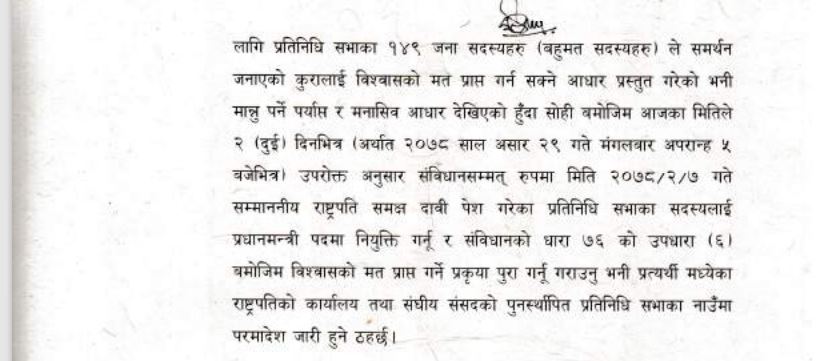 लागि प्रतिनिधि सभाका १४९ जना सदस्यहरु (बहुमत सदस्यहरु) ले समर्थन
जनाएको कुरालाई विश्वासको मत प्राप्त गर्न सक्ने आधार प्रस्तुत गरेको भनी
मान्नु पर्ने पर्याप्त र मनासिव आधार देखिएको हुँदा सोही बमोजिम आजका मितिले
२ (दुई) दिनभित्र (अर्थात २०७८ साल असार २९ गते मंगलबार अपरान्ह ५
बजेभित्र) उपरोक्त अनुसार संविधानसम्मत् रुपमा मिति २०७८/२/७ गते
सम्माननीय राष्ट्रपति समक्ष दावी पेश गरेका प्रतिनिधि सभाका सदस्यलाई
प्रधानमन्त्री पदमा नियुक्ति गर्नू र संविधानको धारा ७६ को उपधारा (६)
बमोजिम विश्वासको मत प्राप्त गर्ने प्रकृया पुरा गर्नू गराउनु भनी प्रत्यर्थी मध्येका
राष्ट्रपतिको कार्यालय तथा संघीय संसदको पुनर्स्थापित प्रतिनिधि सभाका नाउँमा
परमादेश जारी हुने ठहर्छ।